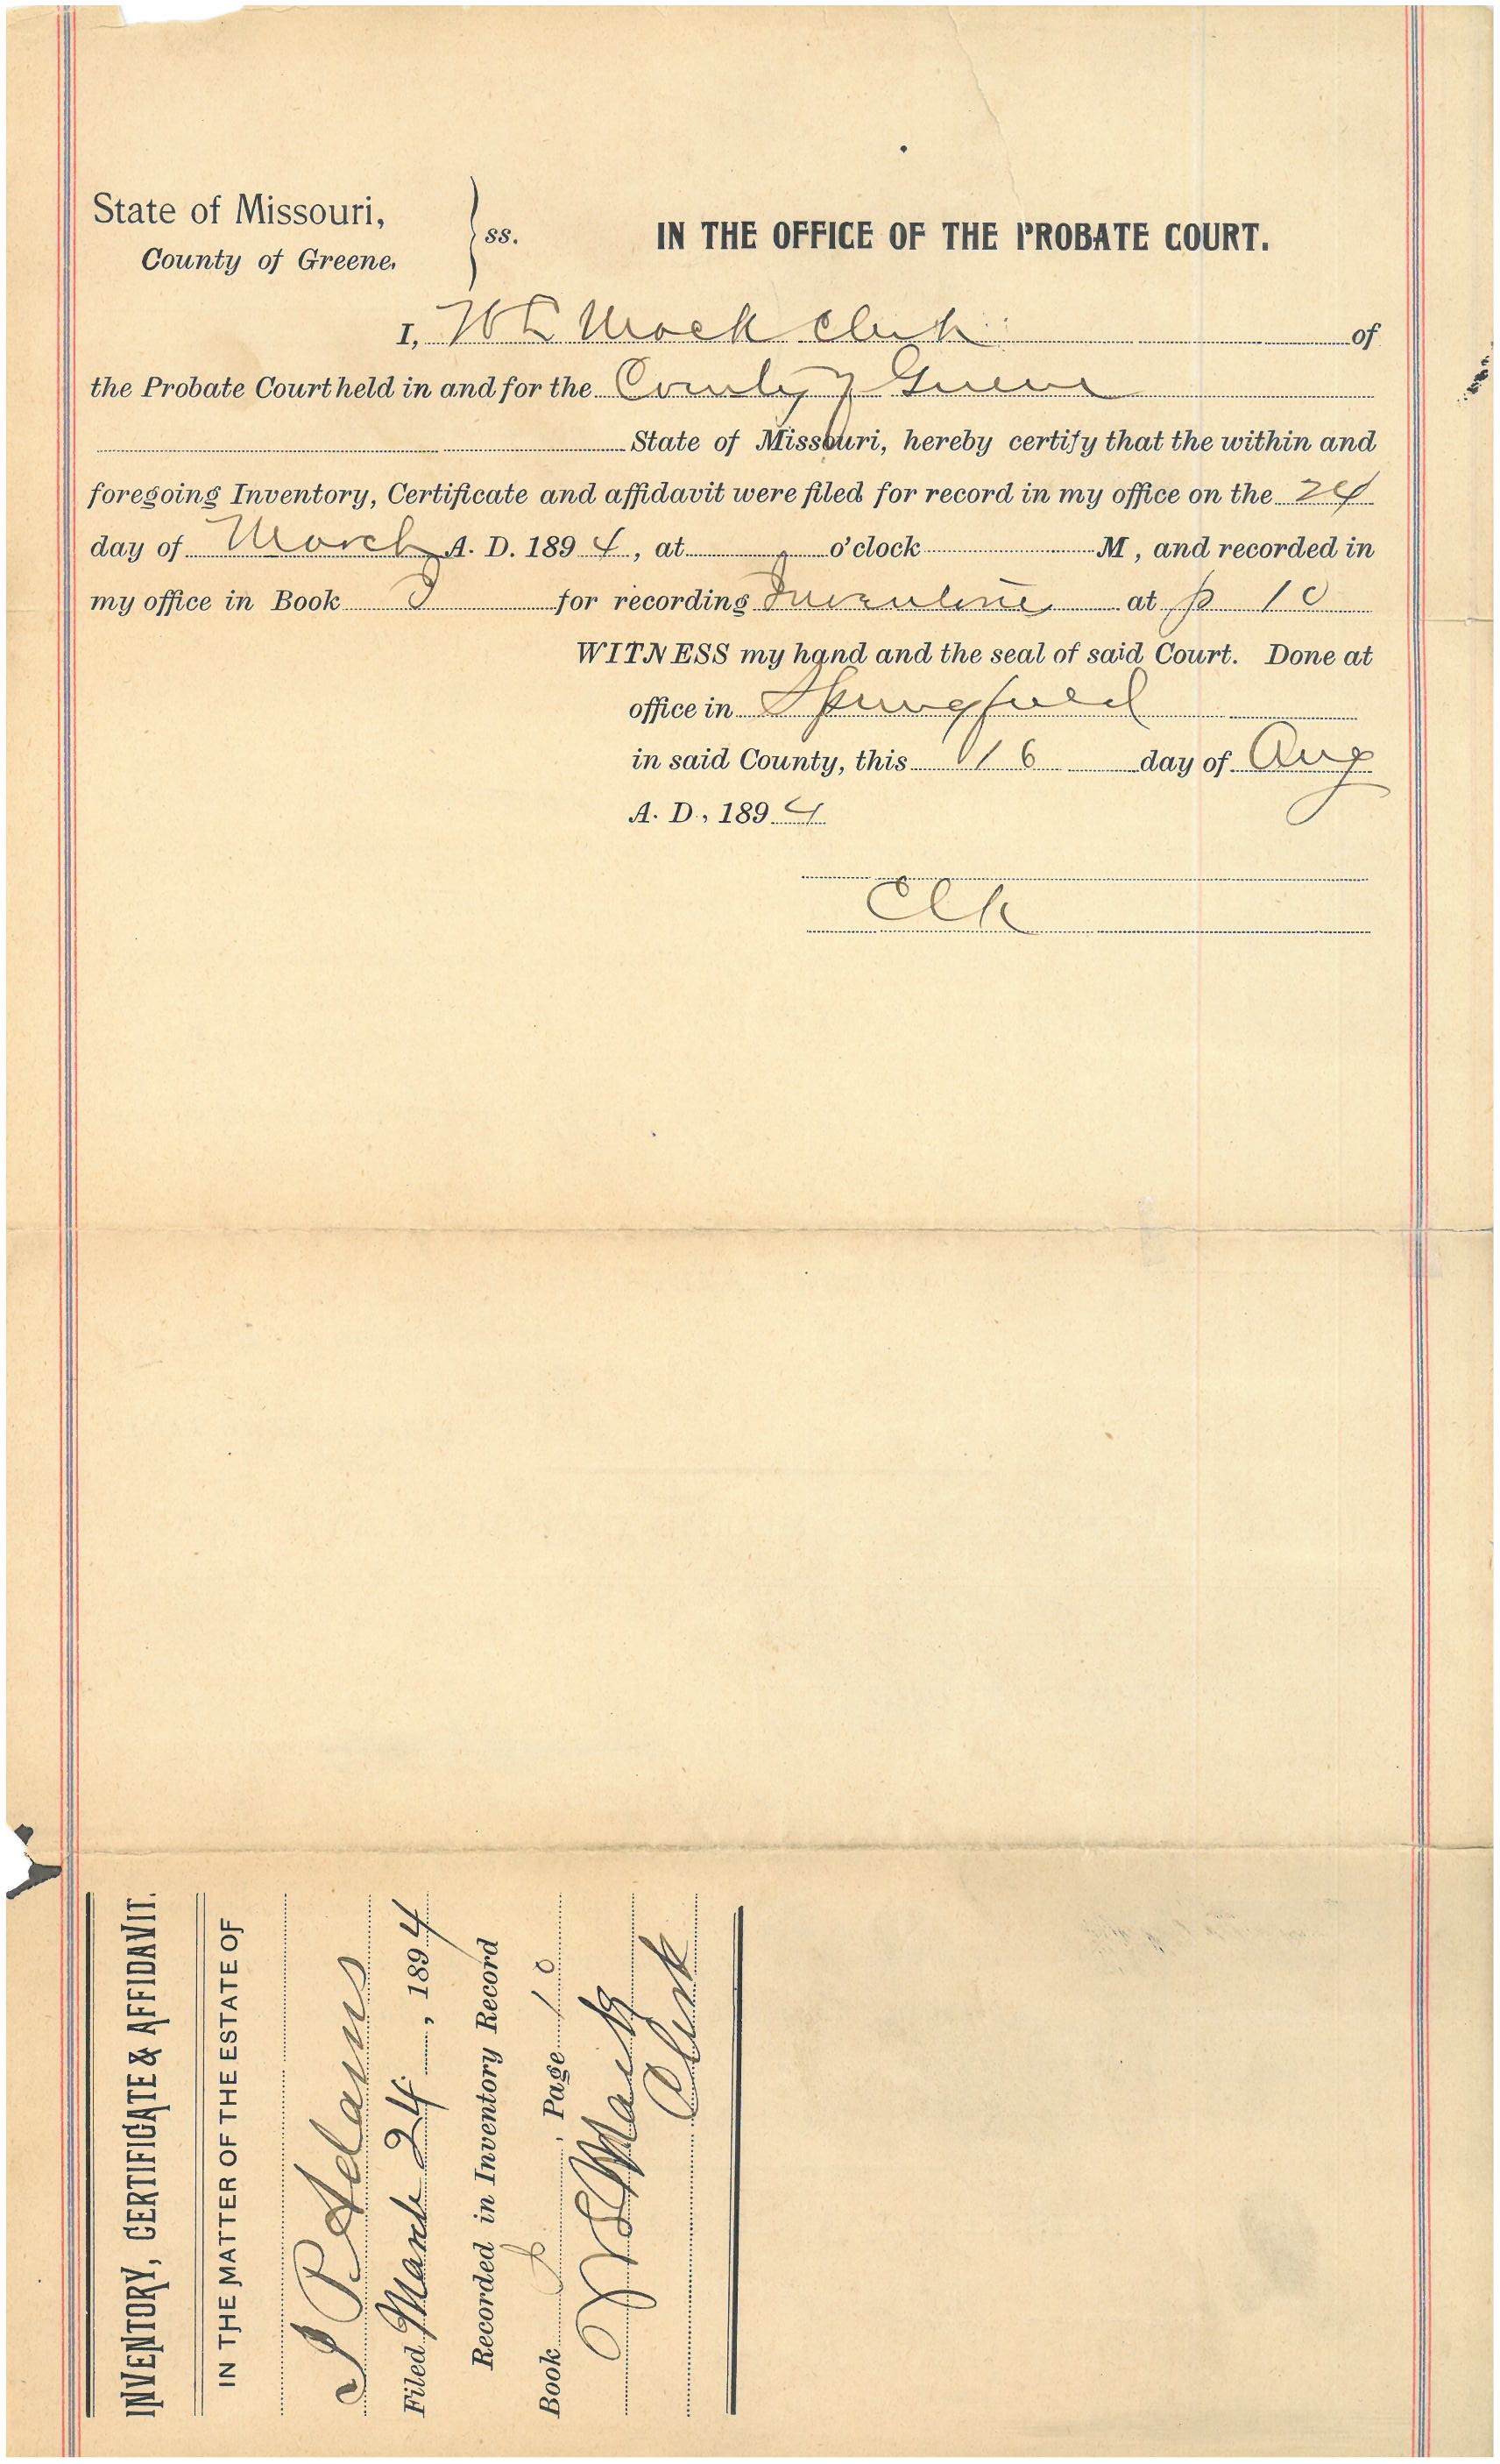 State of Missouri,
County of Greene.
ss.
IN THE OFFICE OF THE PROBATE COURT.
I, Clerk of
the Probate Court held in and for the County of Greene
State of Missouri, hereby certify that the within and
foregoing Inventory, Certificate and affidavit were filed for record in my office on the 24
day of March A. D. 1894, at o'clock M, and recorded in
my office in Book J for recording Inventories at p 10
WITNESS my hand and the seal of said Court. Done at
office in Springfield
in said County, this 16 day of Aug
A. D., 1894
Clk
INVENTORY, CERTIFICATE & AFFIDAVIT.
IN THE MATTER OF THE ESTATE OF
J P Adams
Filed March 24, 1894
Recorded in Inventory Record
Book J, Page 10
Clerk